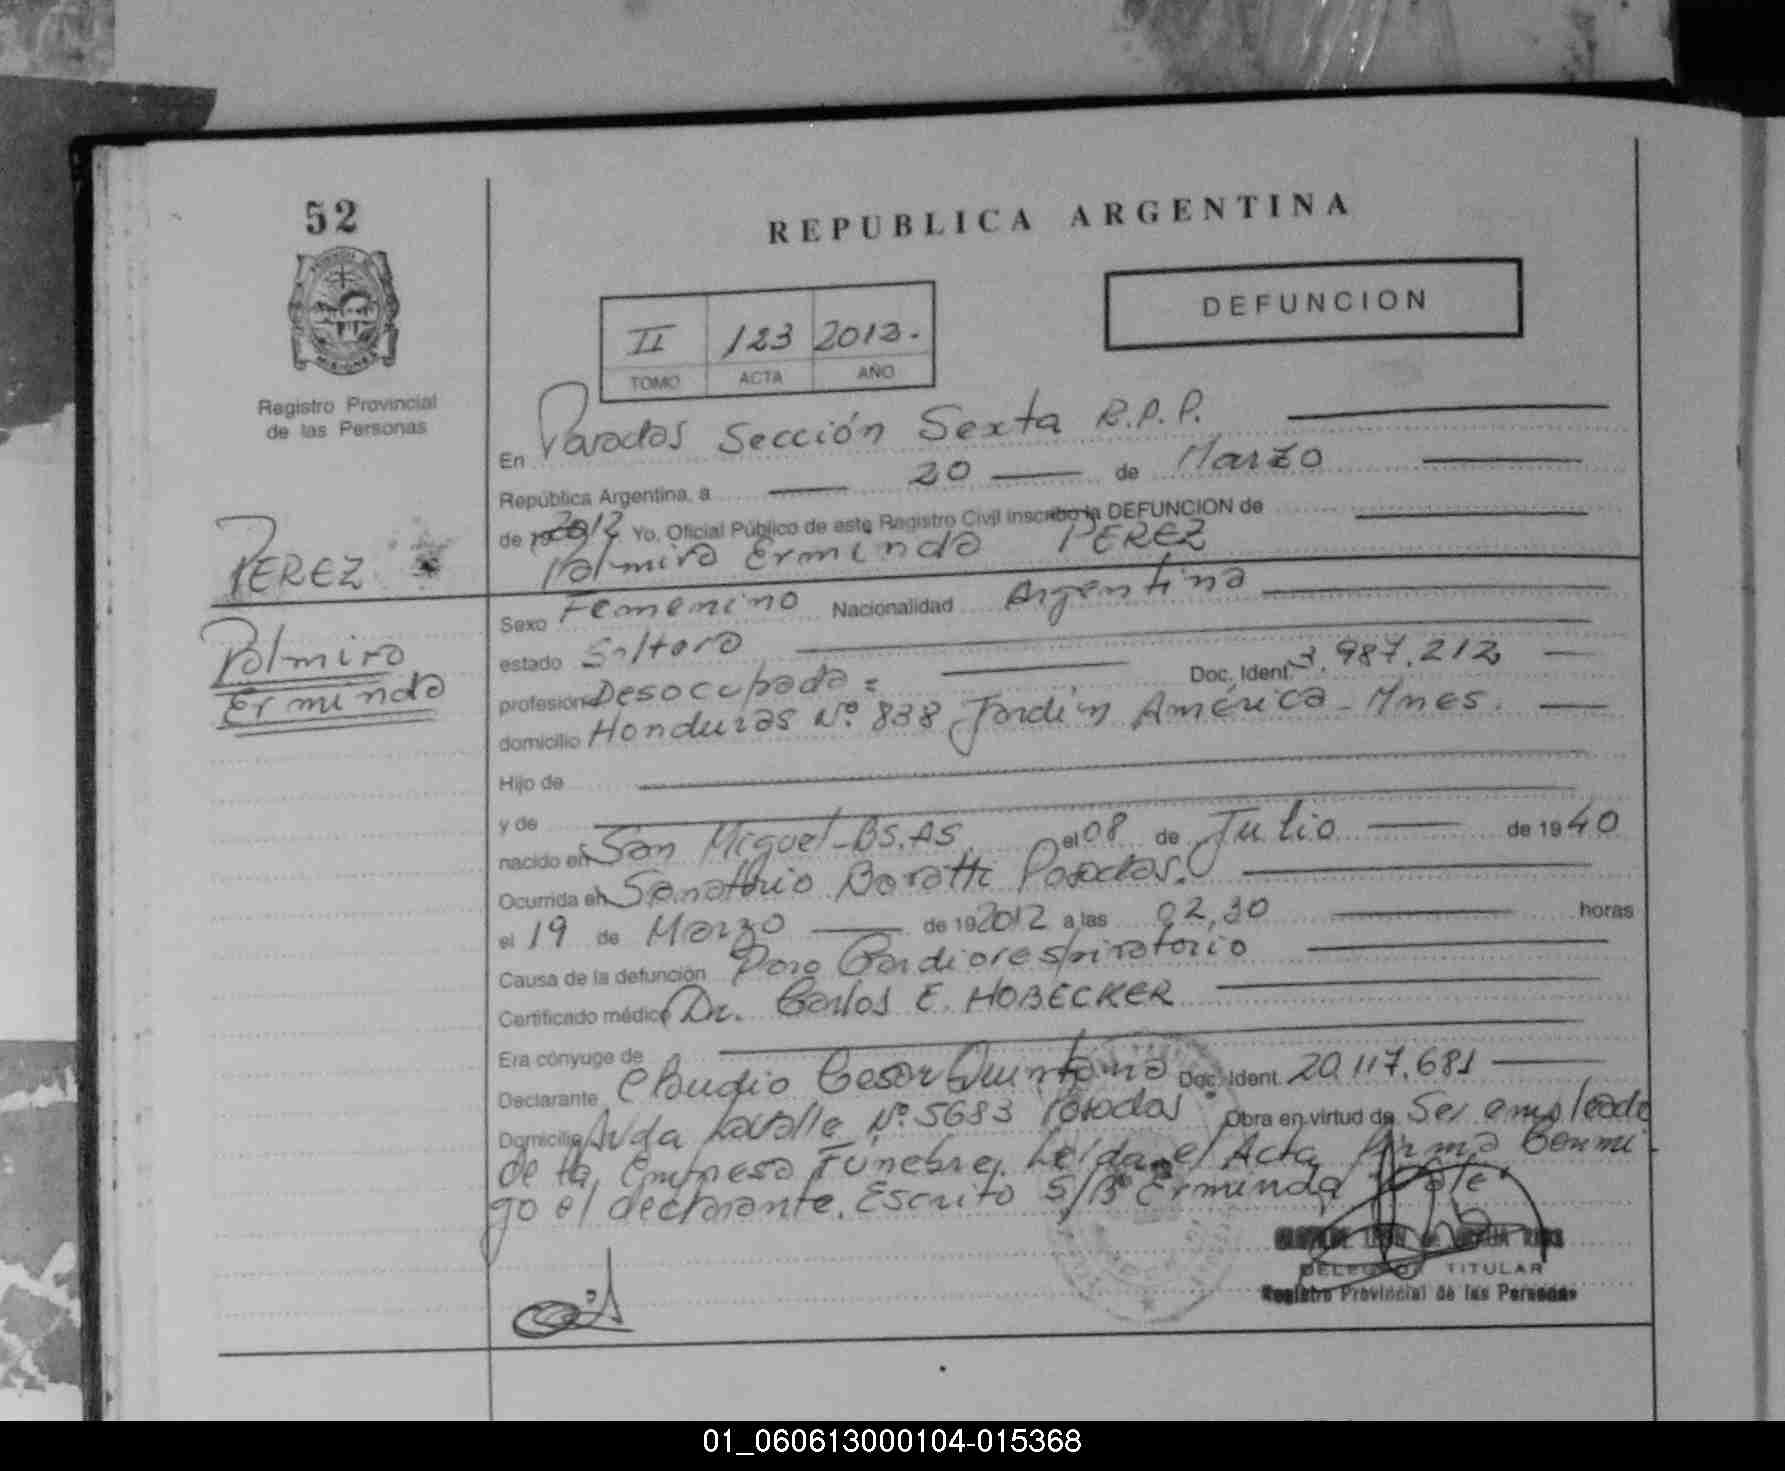 52
REPUBLICA ARGENTINA
DEFUNCION
II 123 2012.
TOMO ACTA AÑO
Registro Provincial
de las Personas
En Posadas Sección Sexta R.P.P.
República Argentina, a 20 de Marzo
de 2012 Yo, Oficial Público de este Registro Civil inscribo la DEFUNCION de
Palmira Erminda PEREZ
PEREZ
Palmira
Erminda
Sexo Femenino Nacionalidad Argentina
estado Soltera
profesion Desocupada = Doc. Ident. 3.987.212
domicilio Honduras Nº 838 Jardín América - Mnes.
Hijo de
y de
nacido en San Miguel - BS.AS. el 08 de Julio de 1940
Ocurrida en Sanatorio Boratti Posadas.
el 19 de Marzo de 192012 a las 02,30 horas
Causa de la defunción Paro Cardiorespiratorio
Certificado médico Dr. Carlos E. HOBECKER
Era cónyuge de
Declarante Claudio Cesar Quintana Doc. Ident. 20.117.681
Domicilio Avda Lavalle Nº 5683 Posadas Obra en virtud de Ser empleado
de la Empresa Funebre. Leída el Acta firma Conmi-
go el declarante. Escrito S/Bº Erminda Vale
DELEGADA TITULAR
Registro Provincial de las Personas
01_060613000104-015368